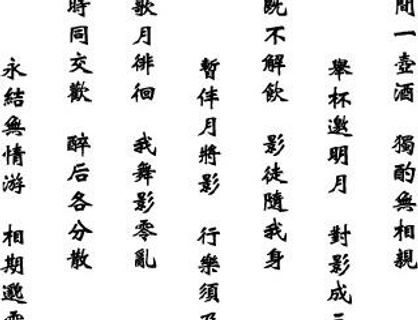 間一壺酒 獨酌無相親
舉杯邀明月 對影成三
既不解飲 影徒隨我身
暫伴月將影 行樂須及
歌月徘徊 我舞影零亂
時同交歡 醉后各分散
永結無情游 相期邈雲